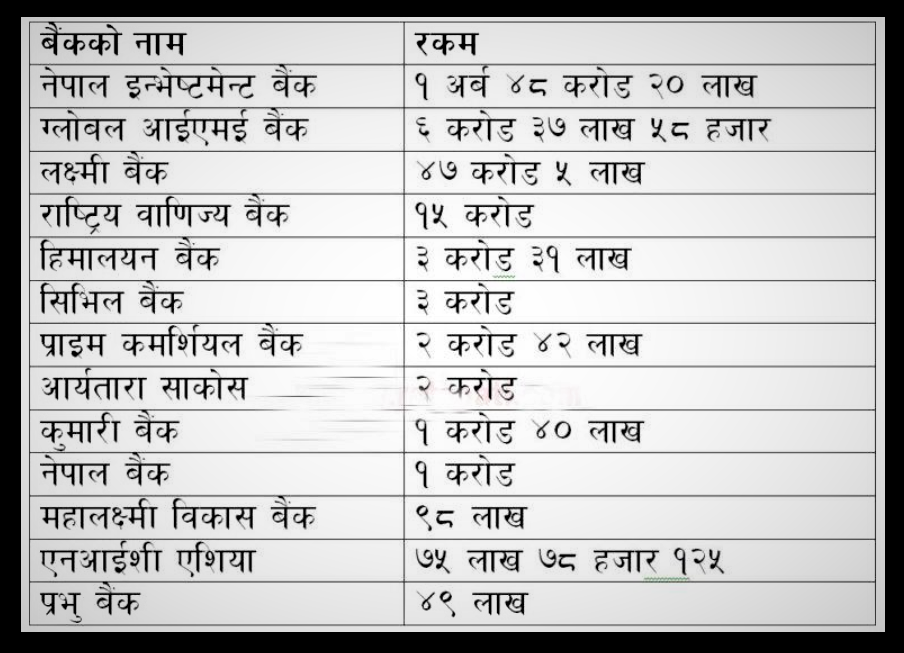 बैंकको नाम रकम
नेपाल इन्भेष्टमेन्ट बैंक १ अर्ब ४८ करोड २० लाख
ग्लोबल आईएमई बैंक ६ करोड ३७ लाख ५८ हजार
लक्ष्मी बैंक ४७ करोड ५ लाख
राष्ट्रिय वाणिज्य बैंक १५ करोड
हिमालयन बैंक ३ करोड ३१ लाख
सिभिल बैंक ३ करोड
प्राइम कमर्शियल बैंक २ करोड ४२ लाख
आर्यतारा साकोस २ करोड
कुमारी बैंक १ करोड ४० लाख
नेपाल बैंक १ करोड
महालक्ष्मी विकास बैंक ९८ लाख
एनआईशी एशिया ७५ लाख ७८ हजार १२५
प्रभु बैंक ४९ लाख